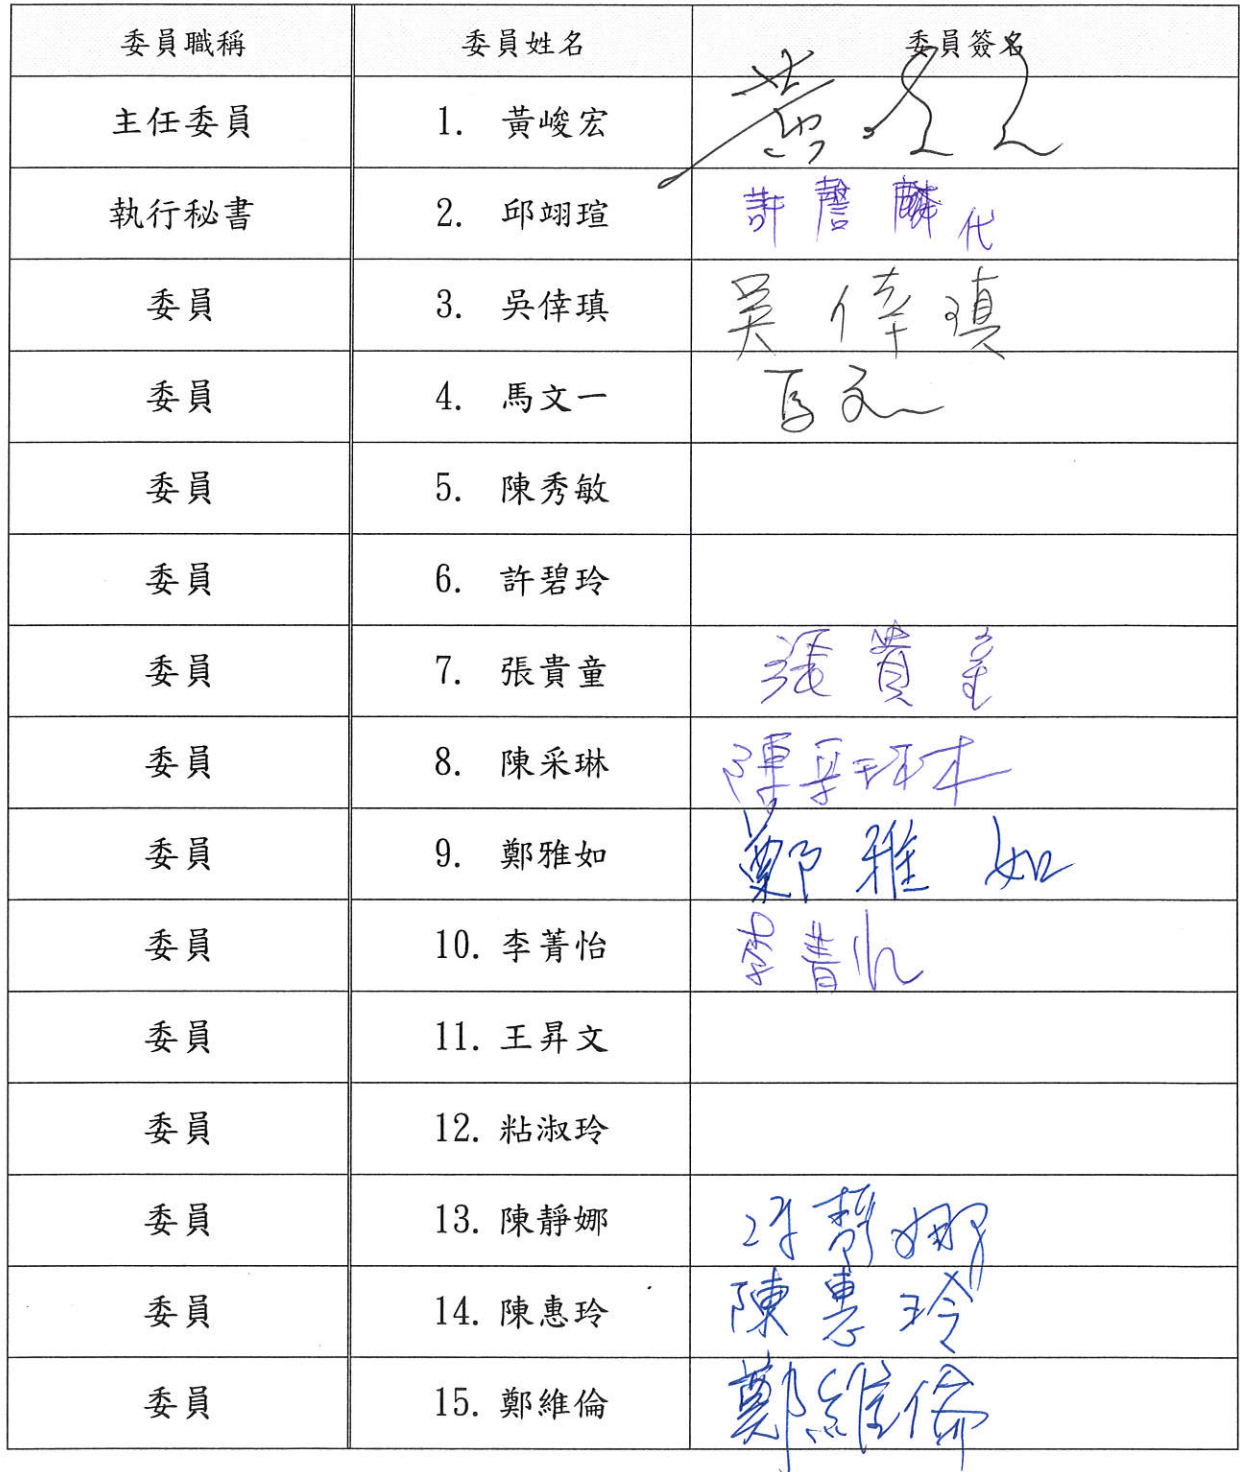 委員職稱 委員姓名 委員簽名
主任委員 1. 黃峻宏
執行秘書 2. 邱翊瑄 許 代
委員 3. 吳倖瑱 吳倖瑱
委員 4. 馬文一 馬文一
委員 5. 陳秀敏
委員 6. 許碧玲
委員 7. 張貴童 張貴童
委員 8. 陳采琳 陳采琳
委員 9. 鄭雅如 鄭雅如
委員 10. 李菁怡 李菁怡
委員 11. 王昇文
委員 12. 粘淑玲
委員 13. 陳靜娜 陳靜娜
委員 14. 陳惠玲 陳惠玲
委員 15. 鄭維倫 鄭維倫